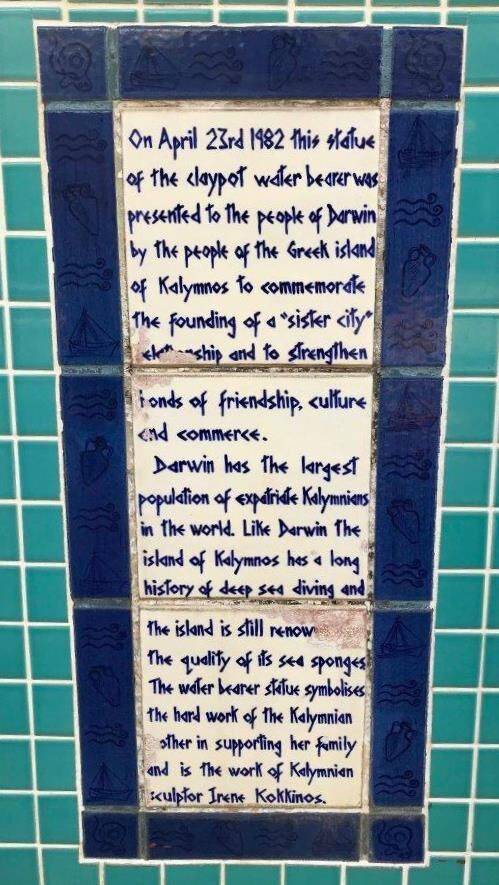 On April 23rd 1982 this statue
of the claypot water bearer was
presented to the people of Darwin
by the people of the Greek island
of Kalymnos to commemorate
the founding of a "sister city"
and to strengthen
of friendship, culture
and commerce.
Darwin has the largest
population of expatriate Kalymnians
in the world. Like Darwin the
island of Kalymnos has a long
history of deep sea diving and
the island is still
the quality of its sea sponges
The water bearer statue symbolises
the hard work of the Kalymnian
in supporting her family
and is the work of Kalymnian
sculptor Irene Kokkinos.